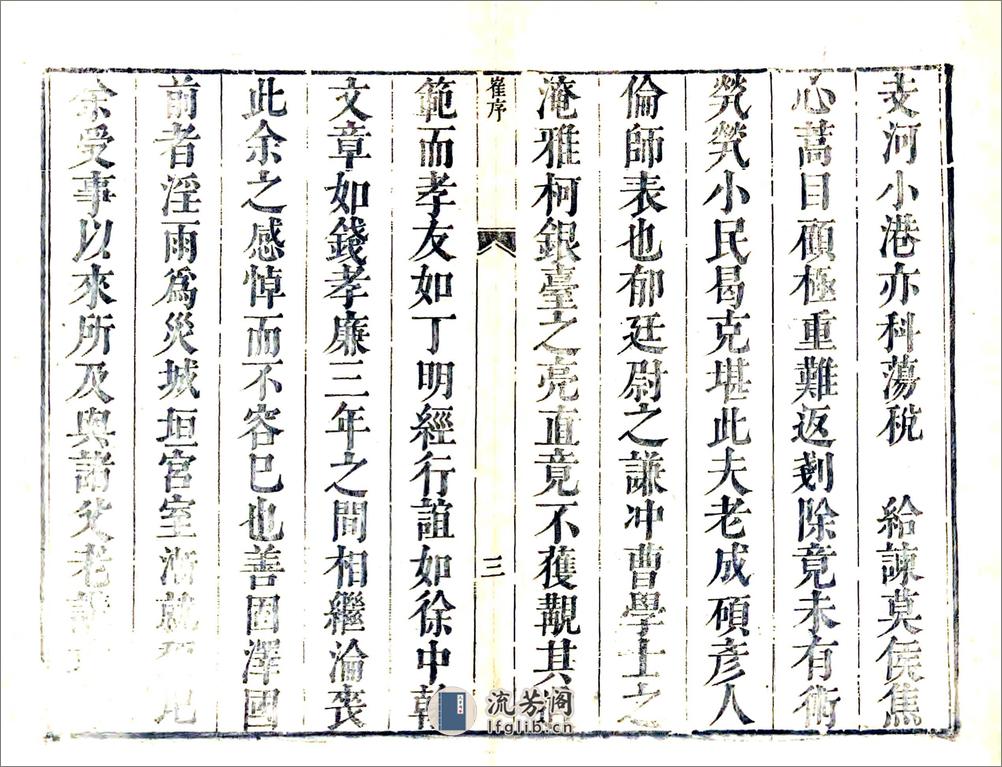 支河小港亦科蕩稅　給諫莫俟焦
心蒿目頋極重難返剗除竟未有術
煢煢小民曷克堪此夫老成碩彥人
倫師表也郁廷尉之謙冲曹學士之
淹雅柯銀臺之亮直竟不獲觀其
崔序
三
範而孝友如丁明經行誼如徐中翰
文章如錢孝廉三年之間相繼淪喪
此余之感悼而不容已也善固澤國
前者淫雨爲災城垣宮室漸就圮
余受事以來所及與諸父老講
流芳阁
lfglib.cn